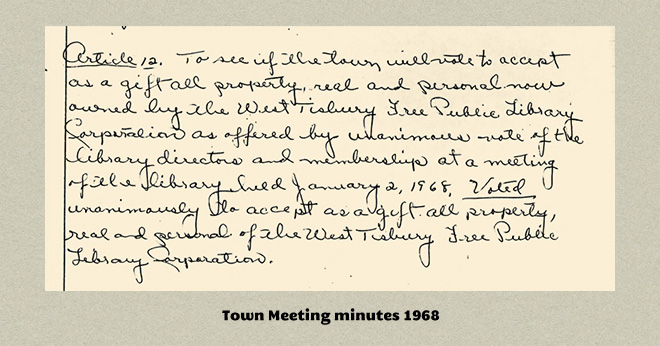 Article 12. To see if the town will vote to accept
as a gift all property, real and personal now
owned by the West Tisbury Free Public Library
Corporation as offered by unanimous vote of the
library directors and membership at a meeting
of the library held January 2, 1968, Voted
unanimously to accept as a gift all property,
real and personal of the West Tisbury Free Public
Library Corporation.
Town Meeting minutes 1968